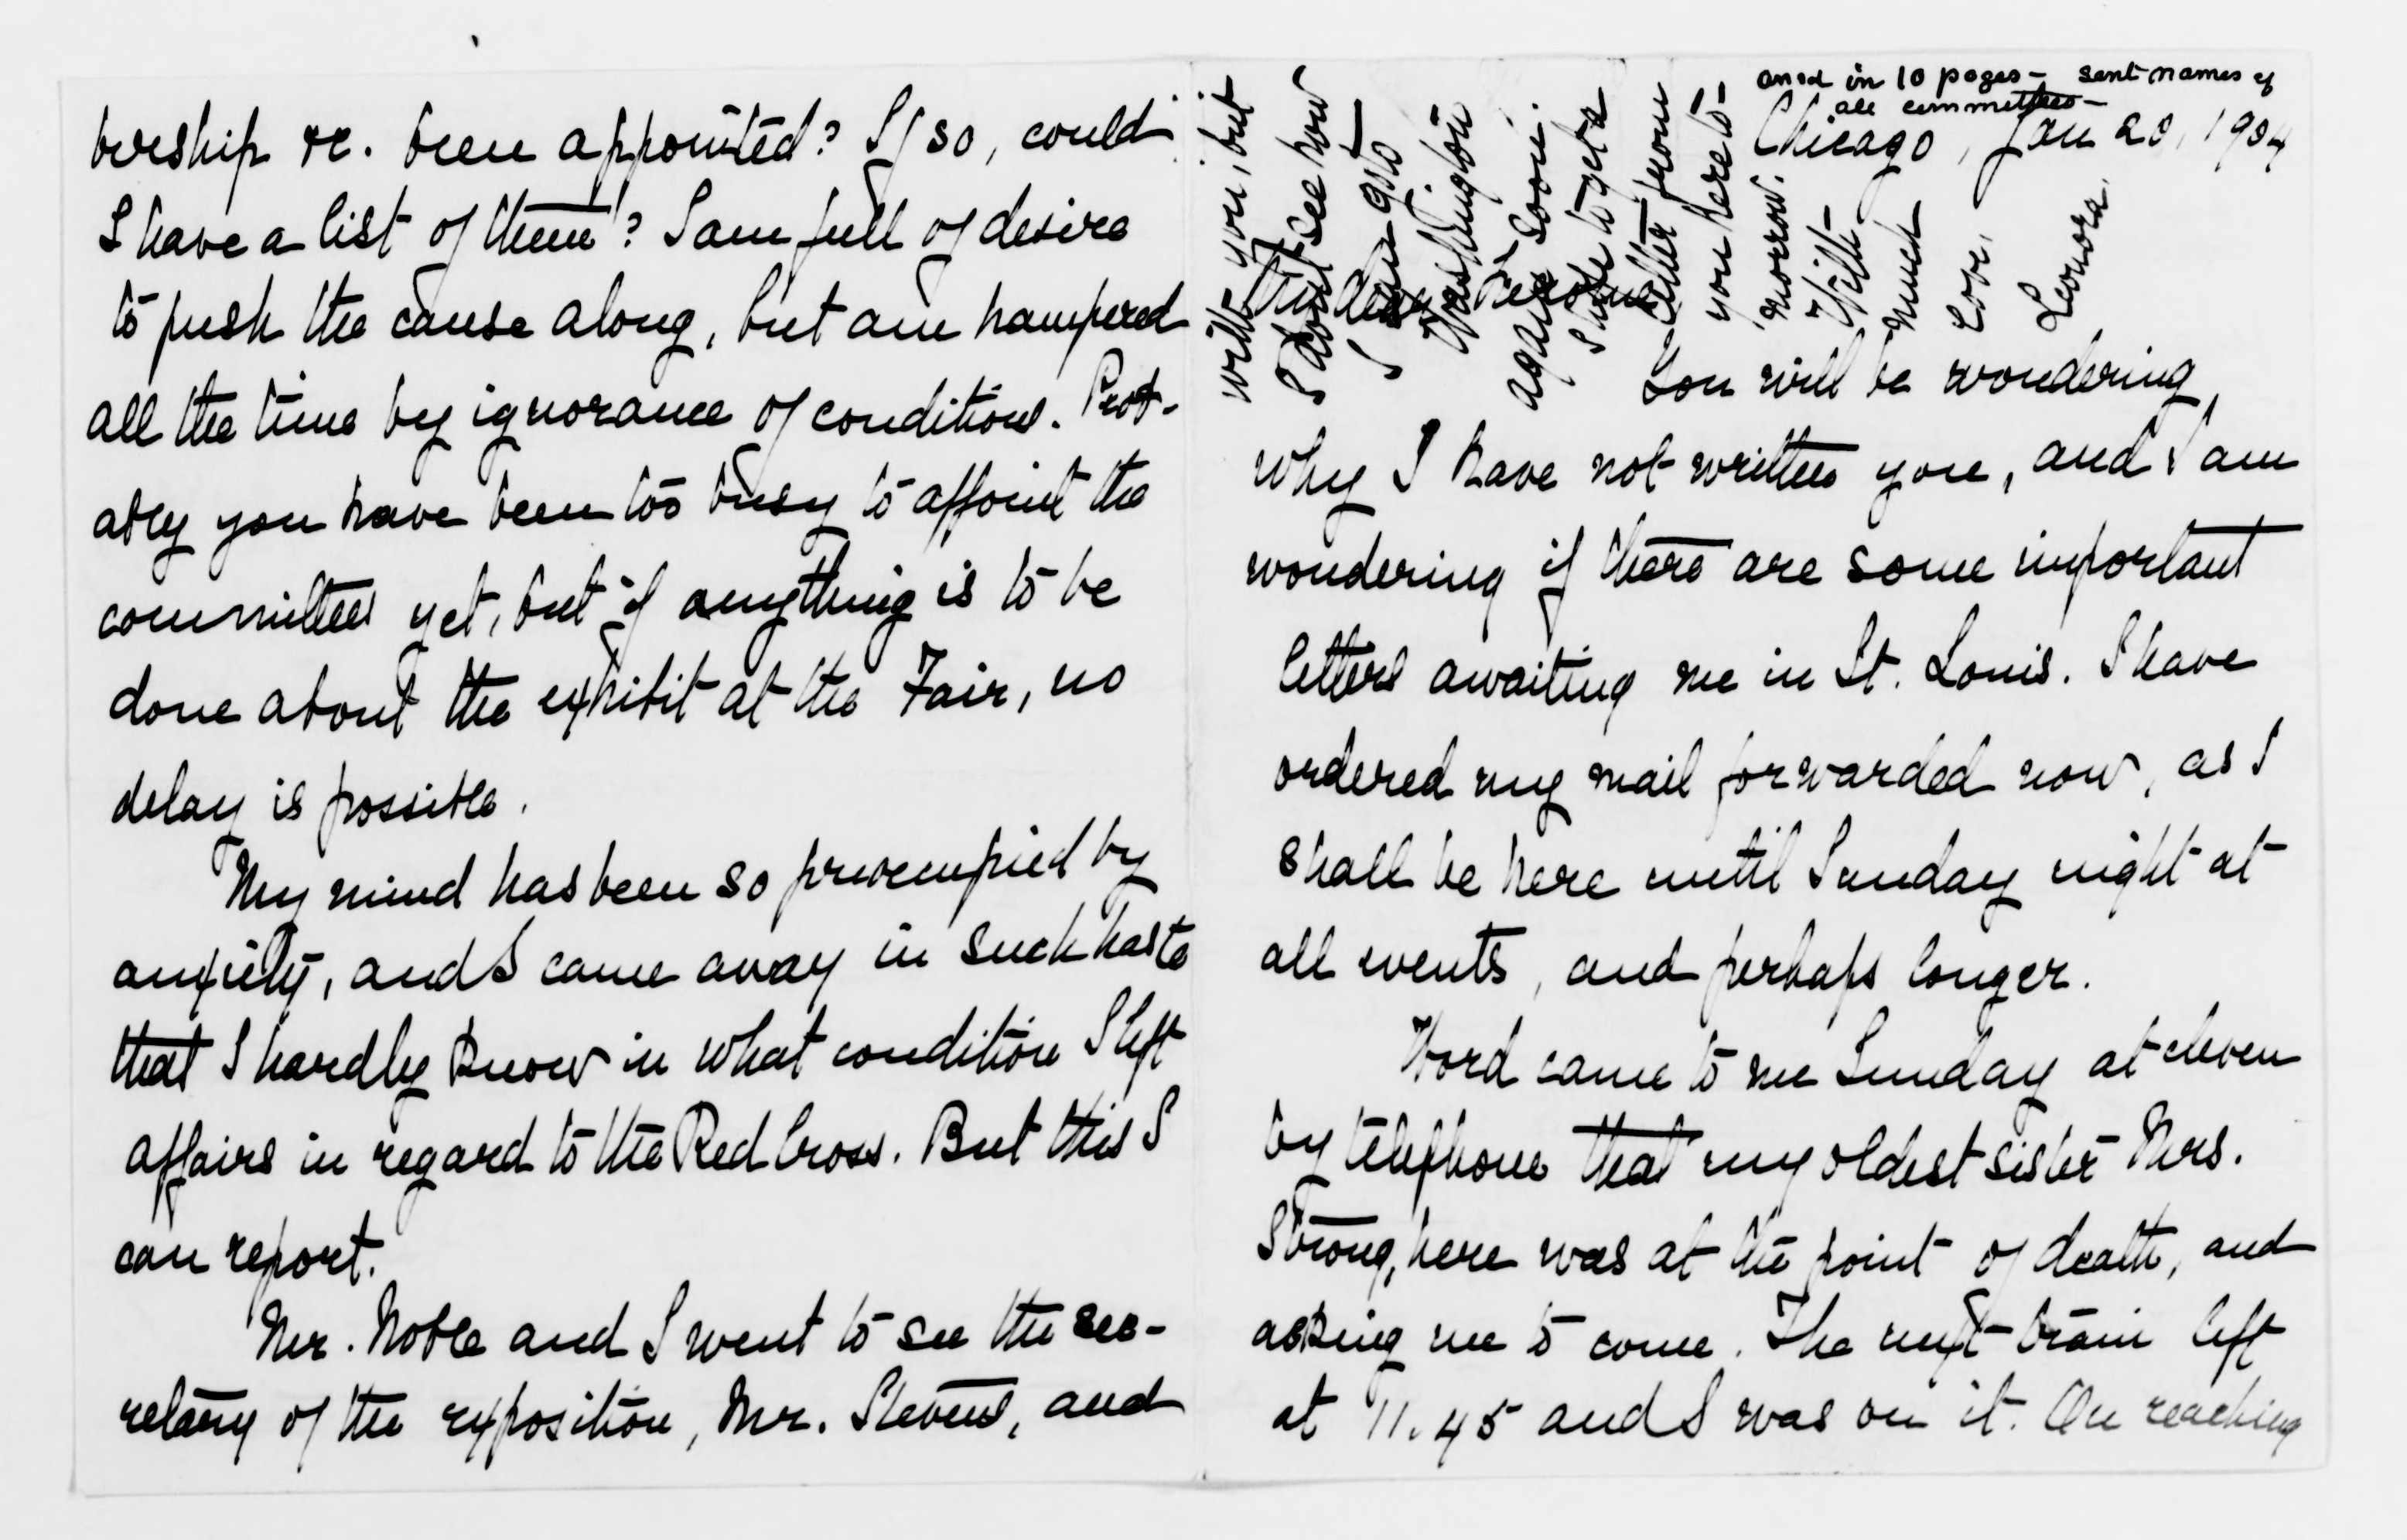 bership &c. been appointed? If so, could
I have a list of them? I am full of desire
to push the cause along, but am hampered
all the time by ignorance of conditions. Prob-
ably you have been too busy to appoint the
committees yet, but if anything is to be
done about the exhibit at the Fair, no
delay is possible.
My mind has been so preoccupied by
anxiety, and I came away in such haste
that I hardly know in what condition I left
affairs in regard to the Red Cross. But this I
can report.
Mr. Noble and I went to see the sec-
retary of the exposition, Mr. Stevens, and
ansd in 10 pages - sent names of
all committees -
Chicago, Jan 20, 1904
My dear
You will be wondering
why I have not written you, and I am
wondering if there are some important
letters awaiting me in St. Louis. I have
ordered my mail forwarded now, as I
shall be here until Sunday night at
all events, and perhaps longer.
Word came to me Sunday at eleven
by telephone that my oldest sister Mrs.
Strong, here was at the point of death, and
asking me to come. The next train left
at 11.45 and I was on it. On reaching
with you, but
I don't see how
I can go to
Washington
again soon.
I hope to get a
letter from
you here to-
morrow.
With
much
love,
Leonora.